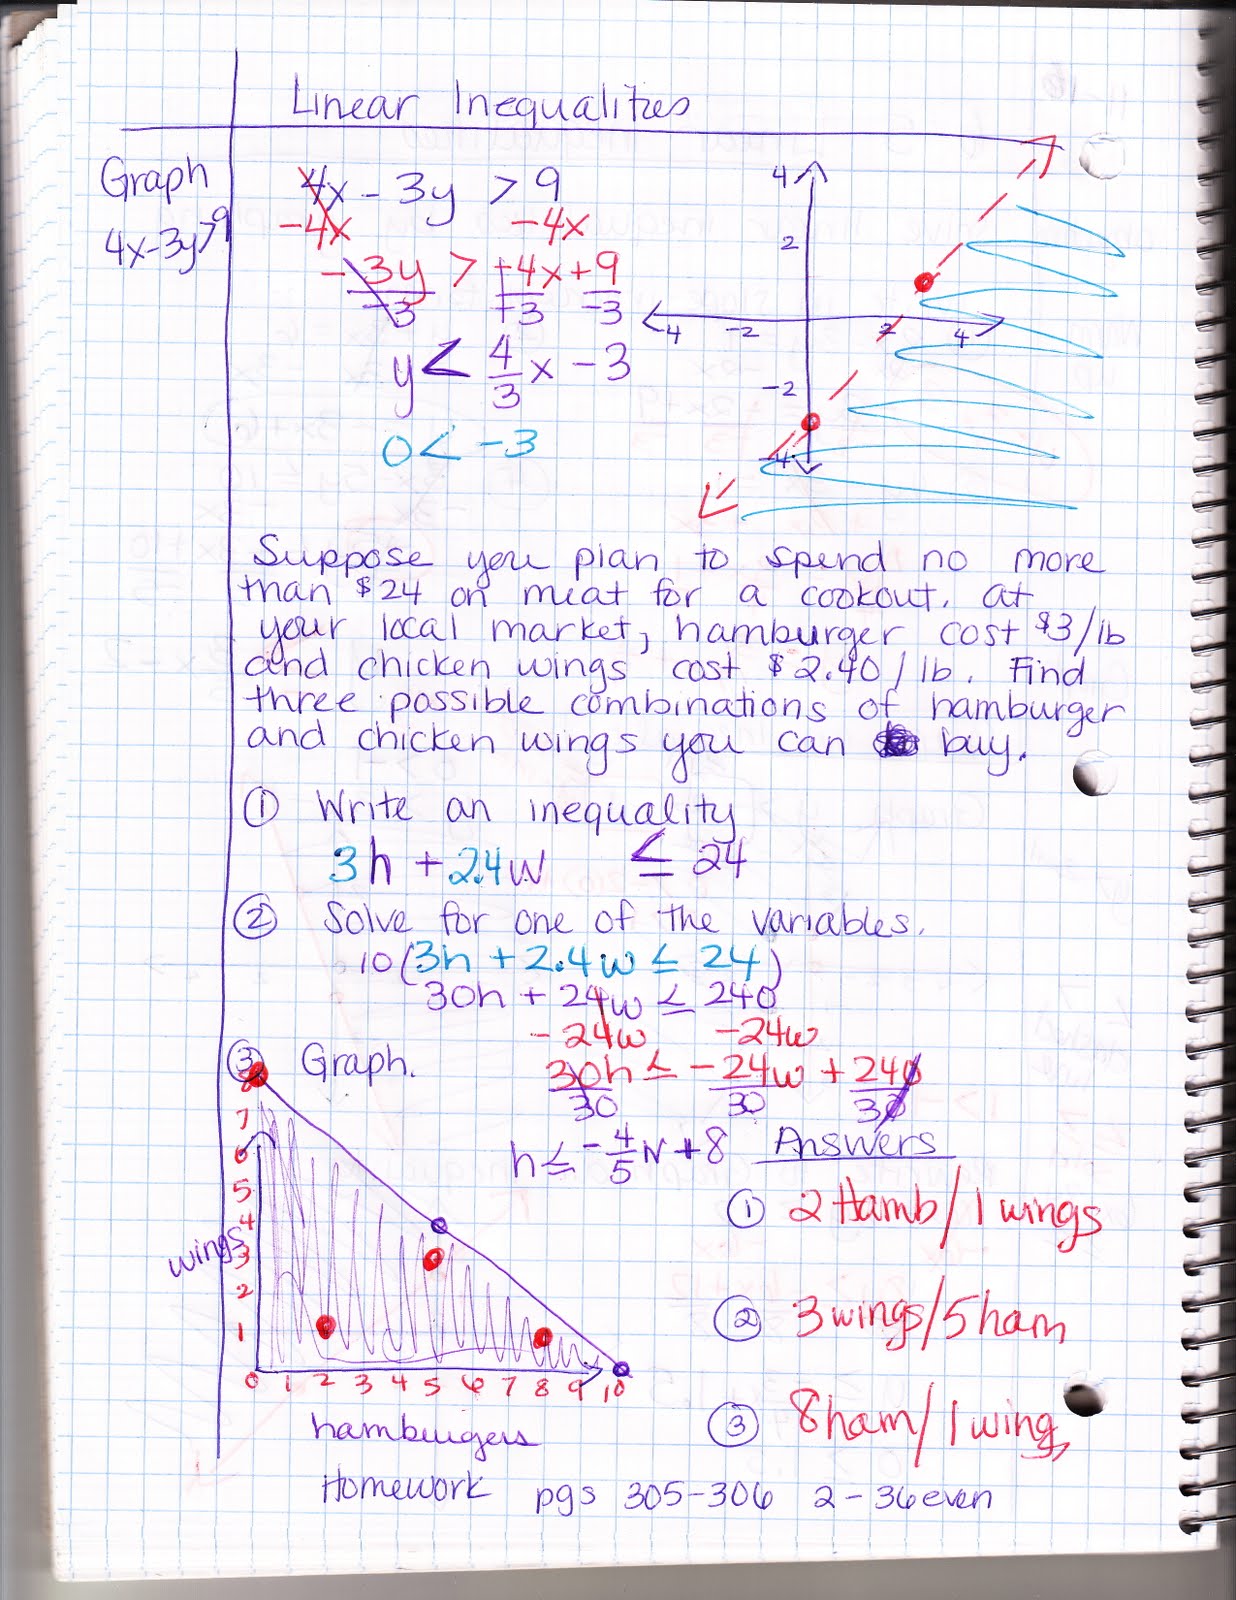 Linear Inequalities
Graph
4x-3y>9
4x - 3y > 9
-4x -4x
-3y > -4x + 9
-3 -3 -3
y < 4/3 x - 3
0 < -3
4
2
-4 -2 2 4
-2
-4
Suppose you plan to spend no more
than $24 on meat for a cookout. at
your local market, hamburger cost $3/lb
and chicken wings cost $2.40/lb. Find
three possible combinations of hamburger
and chicken wings you can buy.
① Write an inequality
3h + 2.4w ≤ 24
② Solve for one of the variables.
10(3h + 2.4w ≤ 24)
30h + 24w ≤ 240
-24w -24w
③ Graph.
30h ≤ -24w + 240
30 30 30
h ≤ -4/5 w + 8
Answers
① 2 Hamb/1 wings
② 3 wings/5 ham
③ 8 ham/1 wing
8
7
6
5
4
wings
3
2
1
0 1 2 3 4 5 6 7 8 9 10
hamburgers
Homework pgs 305-306 2-36 even